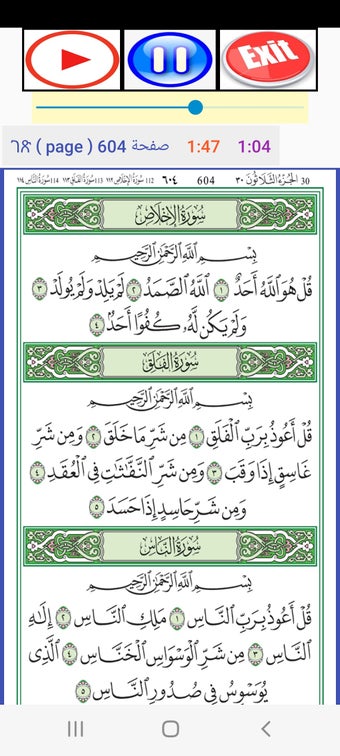 Exit
ገጽ ( page ) 604 صفحة 1:47 1:04
114 سُورَةُ النَّاس ١١٤ 113 سُورَةُ الفَلَق ١١٣ 112 سُورَةُ الإِخْلَاص ١١٢ ٦٠٤ 604 30 الجُزءُ الثَّلَاثُونَ ٣٠
سُورَةُ الإِخْلَاصِ
بِسْمِ ٱللَّهِ ٱلرَّحْمَٰنِ ٱلرَّحِيمِ
قُلْ هُوَ ٱللَّهُ أَحَدٌ ١ ٱللَّهُ ٱلصَّمَدُ ٢ لَمْ يَلِدْ وَلَمْ يُولَدْ ٣
وَلَمْ يَكُن لَّهُۥ كُفُوًا أَحَدٌۢ ٤
سُورَةُ الفَلَقِ
بِسْمِ ٱللَّهِ ٱلرَّحْمَٰنِ ٱلرَّحِيمِ
قُلْ أَعُوذُ بِرَبِّ ٱلْفَلَقِ ١ مِن شَرِّ مَا خَلَقَ ٢ وَمِن شَرِّ
غَاسِقٍ إِذَا وَقَبَ ٣ وَمِن شَرِّ ٱلنَّفَّٰثَٰتِ فِي ٱلْعُقَدِ ٤
وَمِن شَرِّ حَاسِدٍ إِذَا حَسَدَ ٥
سُورَةُ النَّاسِ
بِسْمِ ٱللَّهِ ٱلرَّحْمَٰنِ ٱلرَّحِيمِ
قُلْ أَعُوذُ بِرَبِّ ٱلنَّاسِ ١ مَلِكِ ٱلنَّاسِ ٢ إِلَٰهِ
ٱلنَّاسِ ٣ مِن شَرِّ ٱلْوَسْوَاسِ ٱلْخَنَّاسِ ٤ ٱلَّذِي
يُوَسْوِسُ فِي صُدُورِ ٱلنَّاسِ ٥